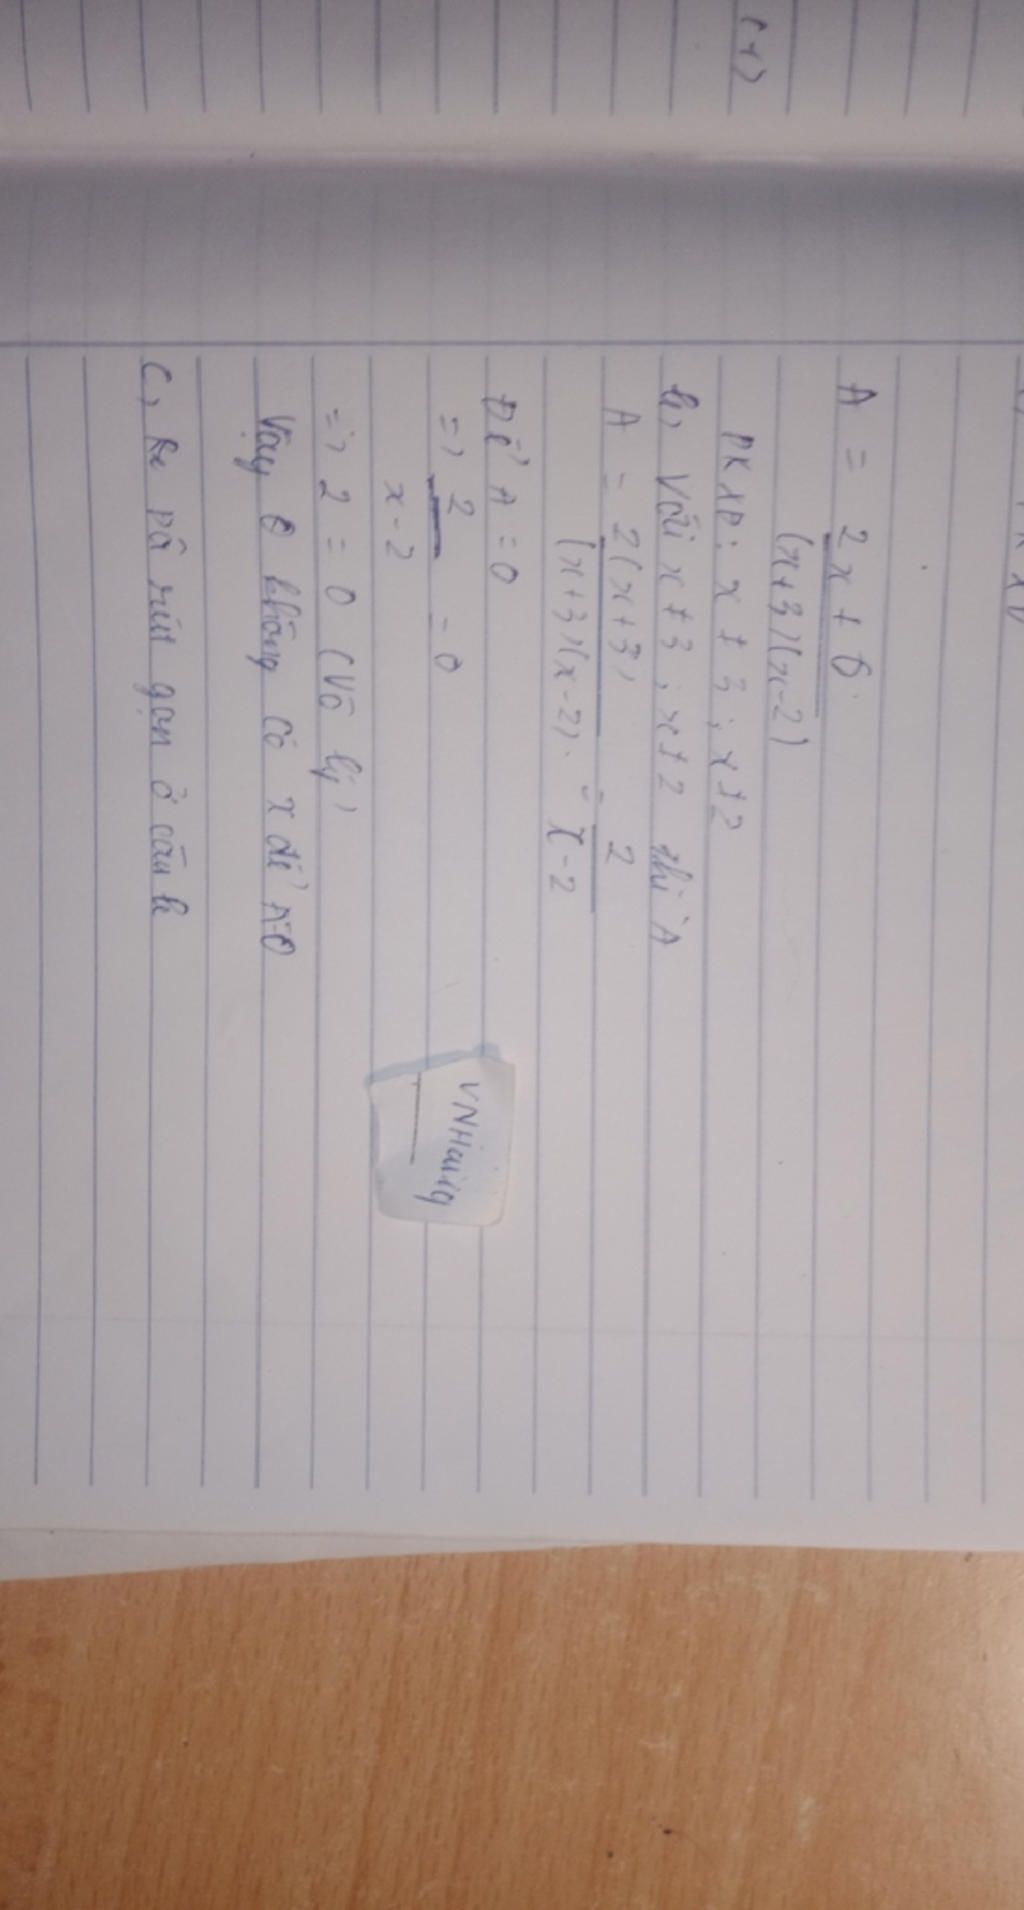 (1)
A = 2x + 6
(x+3)(x-2)
ĐKXĐ: x ≠ 3; x ≠ 2
b, Với x ≠ 3; x ≠ 2 thì A
A = 2(x+3) = 2
(x+3)(x-2). x-2
Để A = 0
=> 2 = 0
x-2
=> 2 = 0 (Vô lý)
Vậy không có x để A=0
c, rút gọn ở câu b
VNHaiig